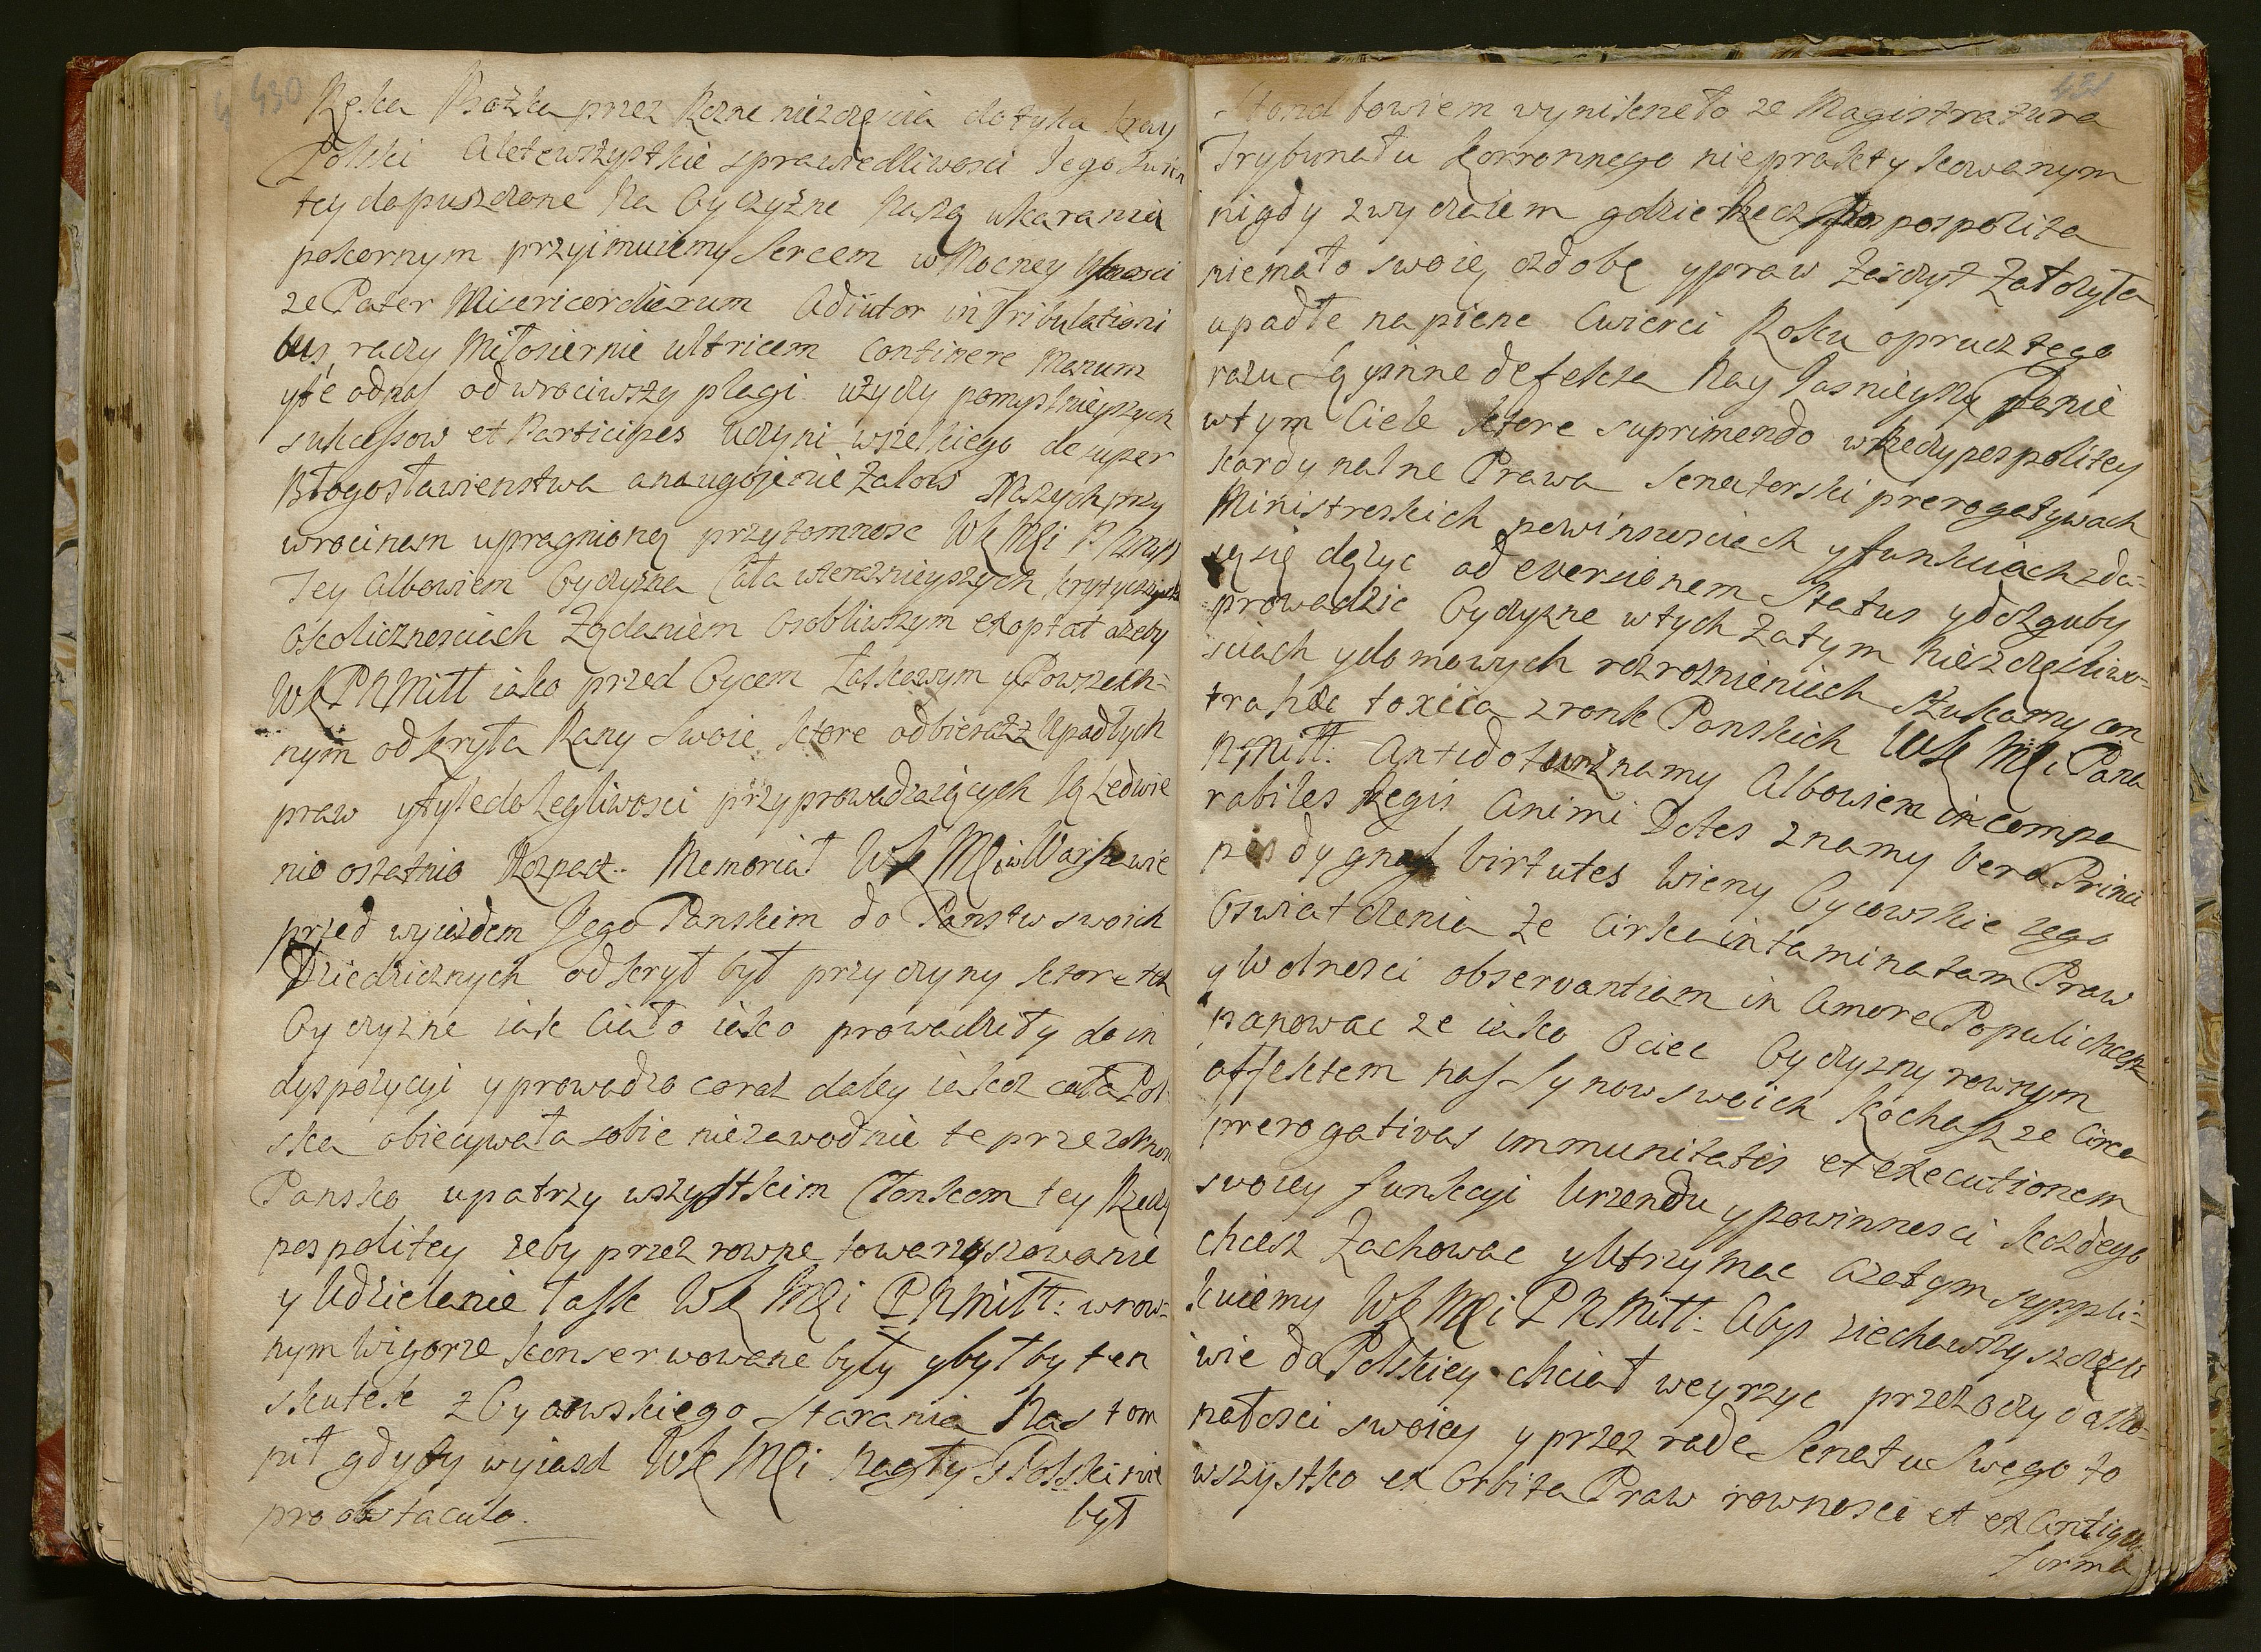 430
Ręka Bozka przez Rozne niezczęscia dotyka kray
Polski Ale te wszystkie sprawiedliwosci Jego Swien
tey dopuszczone Na Oyczyzne Naszą ukarania
pokornym przyimuiemy Sercem w Mocney Ufnosci
ze Pater Misericordiarum Adiutor in Tribulationi
bus raczy Miłosiernie Ultricem Continere Manum
yte odnas odwrociwszy plagi użyczy pomyslnieyszych
sukcessow et Participes Uczyni wszelkiego de super
Błogosławienstwa a na ugojenie Zalow Naszych przy
wroci nam upragnioną przytomnosc WKMCi
Tey Albowiem Oyczyzna Cała wteraznieyszych krytycznych
okolicznosciach Ządaniem Osobliwszym exoptat azeby
WKPNMiłł iako przed Oycem Łaskawym y Powszech=
nym odkryła Rany Swoie, ktore odbiera z Upadłych
praw y tyle dolegliwosci przyprowadzaiących Ią Ledwie
nie ostatnio Rozpacz. Memoriał WKMCi w Warszawie
przed wyiazdem Jego Panskim do Panstw swoich
Dziedzicznych odkrył był przyczyny ktore tek
Oyczyzne iak Ciało iako prowadziły do in
dyspozycyi y prowadzo coraz daley iakoz cała Pol
ska obiecywała sobie niezawodnie te przezornosc
Pansko upatrzy wszystkim Członkom tey Rzeczy
pospolitey zeby przez rowne towarzyszowanie
y Udzielenie łassk WKMCi PNMiłł: w row=
nym Wigorze konserwowane były y byłby ten
skutek z Oycowskiego starania Nastom
pił gdyby wyiazd WKMCi Nagły z Polski nie
pro obstaculo.
był
431
Stond bowiem wynikneło ze Magistratura
Trybunału Korronnego niepraktykowanym
nigdy zwyczaiem gdzie Rzecz pospolita
niemało swoię ozdobę y praw Zaszczyt Załozyła
upadłe na piene Cwierci Roku oprucz tego
razu Są y inne defekta Nay Jasnieyszy Panie
wtym Ciele ktore suprimendo w Rzeczypospolitey
kardynalne Prawa Senatorski prerogatywach
Ministreskich powinnosciach y funkciach zda=
ią się dązyc ad eversionem Status y do zguby
prowadzic Oyczyzne w tych Zatym Nieszczęsliwo=
sciach y domowych rozroznieniach szukamy con
tra hæc toxica z ronk Panskich WKMCi Pana
NMiłł: Antidotum znamy Albowiem incompa
rabiles Regis Animi Dotes znamy vera Princi
pis dygnas Virtutes Wiemy Oycowskie Jego
Oswiatczenia Ze Circa intaminatam Praw
y Wolnosci observantiam in Amore Populi chcesz
panowac ze iako Ociec Oyczyzny rownym
affektem nas Synow swoich Kochasz ze Circa
prerogativas immunitatis et executionem
swoiey funkcyi Urzendu y powinnosci kozdego
chcesz Zachowac y Utrzymac azatym suppli=
kuiemy WKMCi PNMiłł: Abys ziechawszy szczęsli
wie do Polskiey chciał weyrzyc przez oczy dosko=
nałosci swoiey y przez rade Senatu Swego to
wszystko ex Orbita Praw rownosci et ex Antiqua
forma